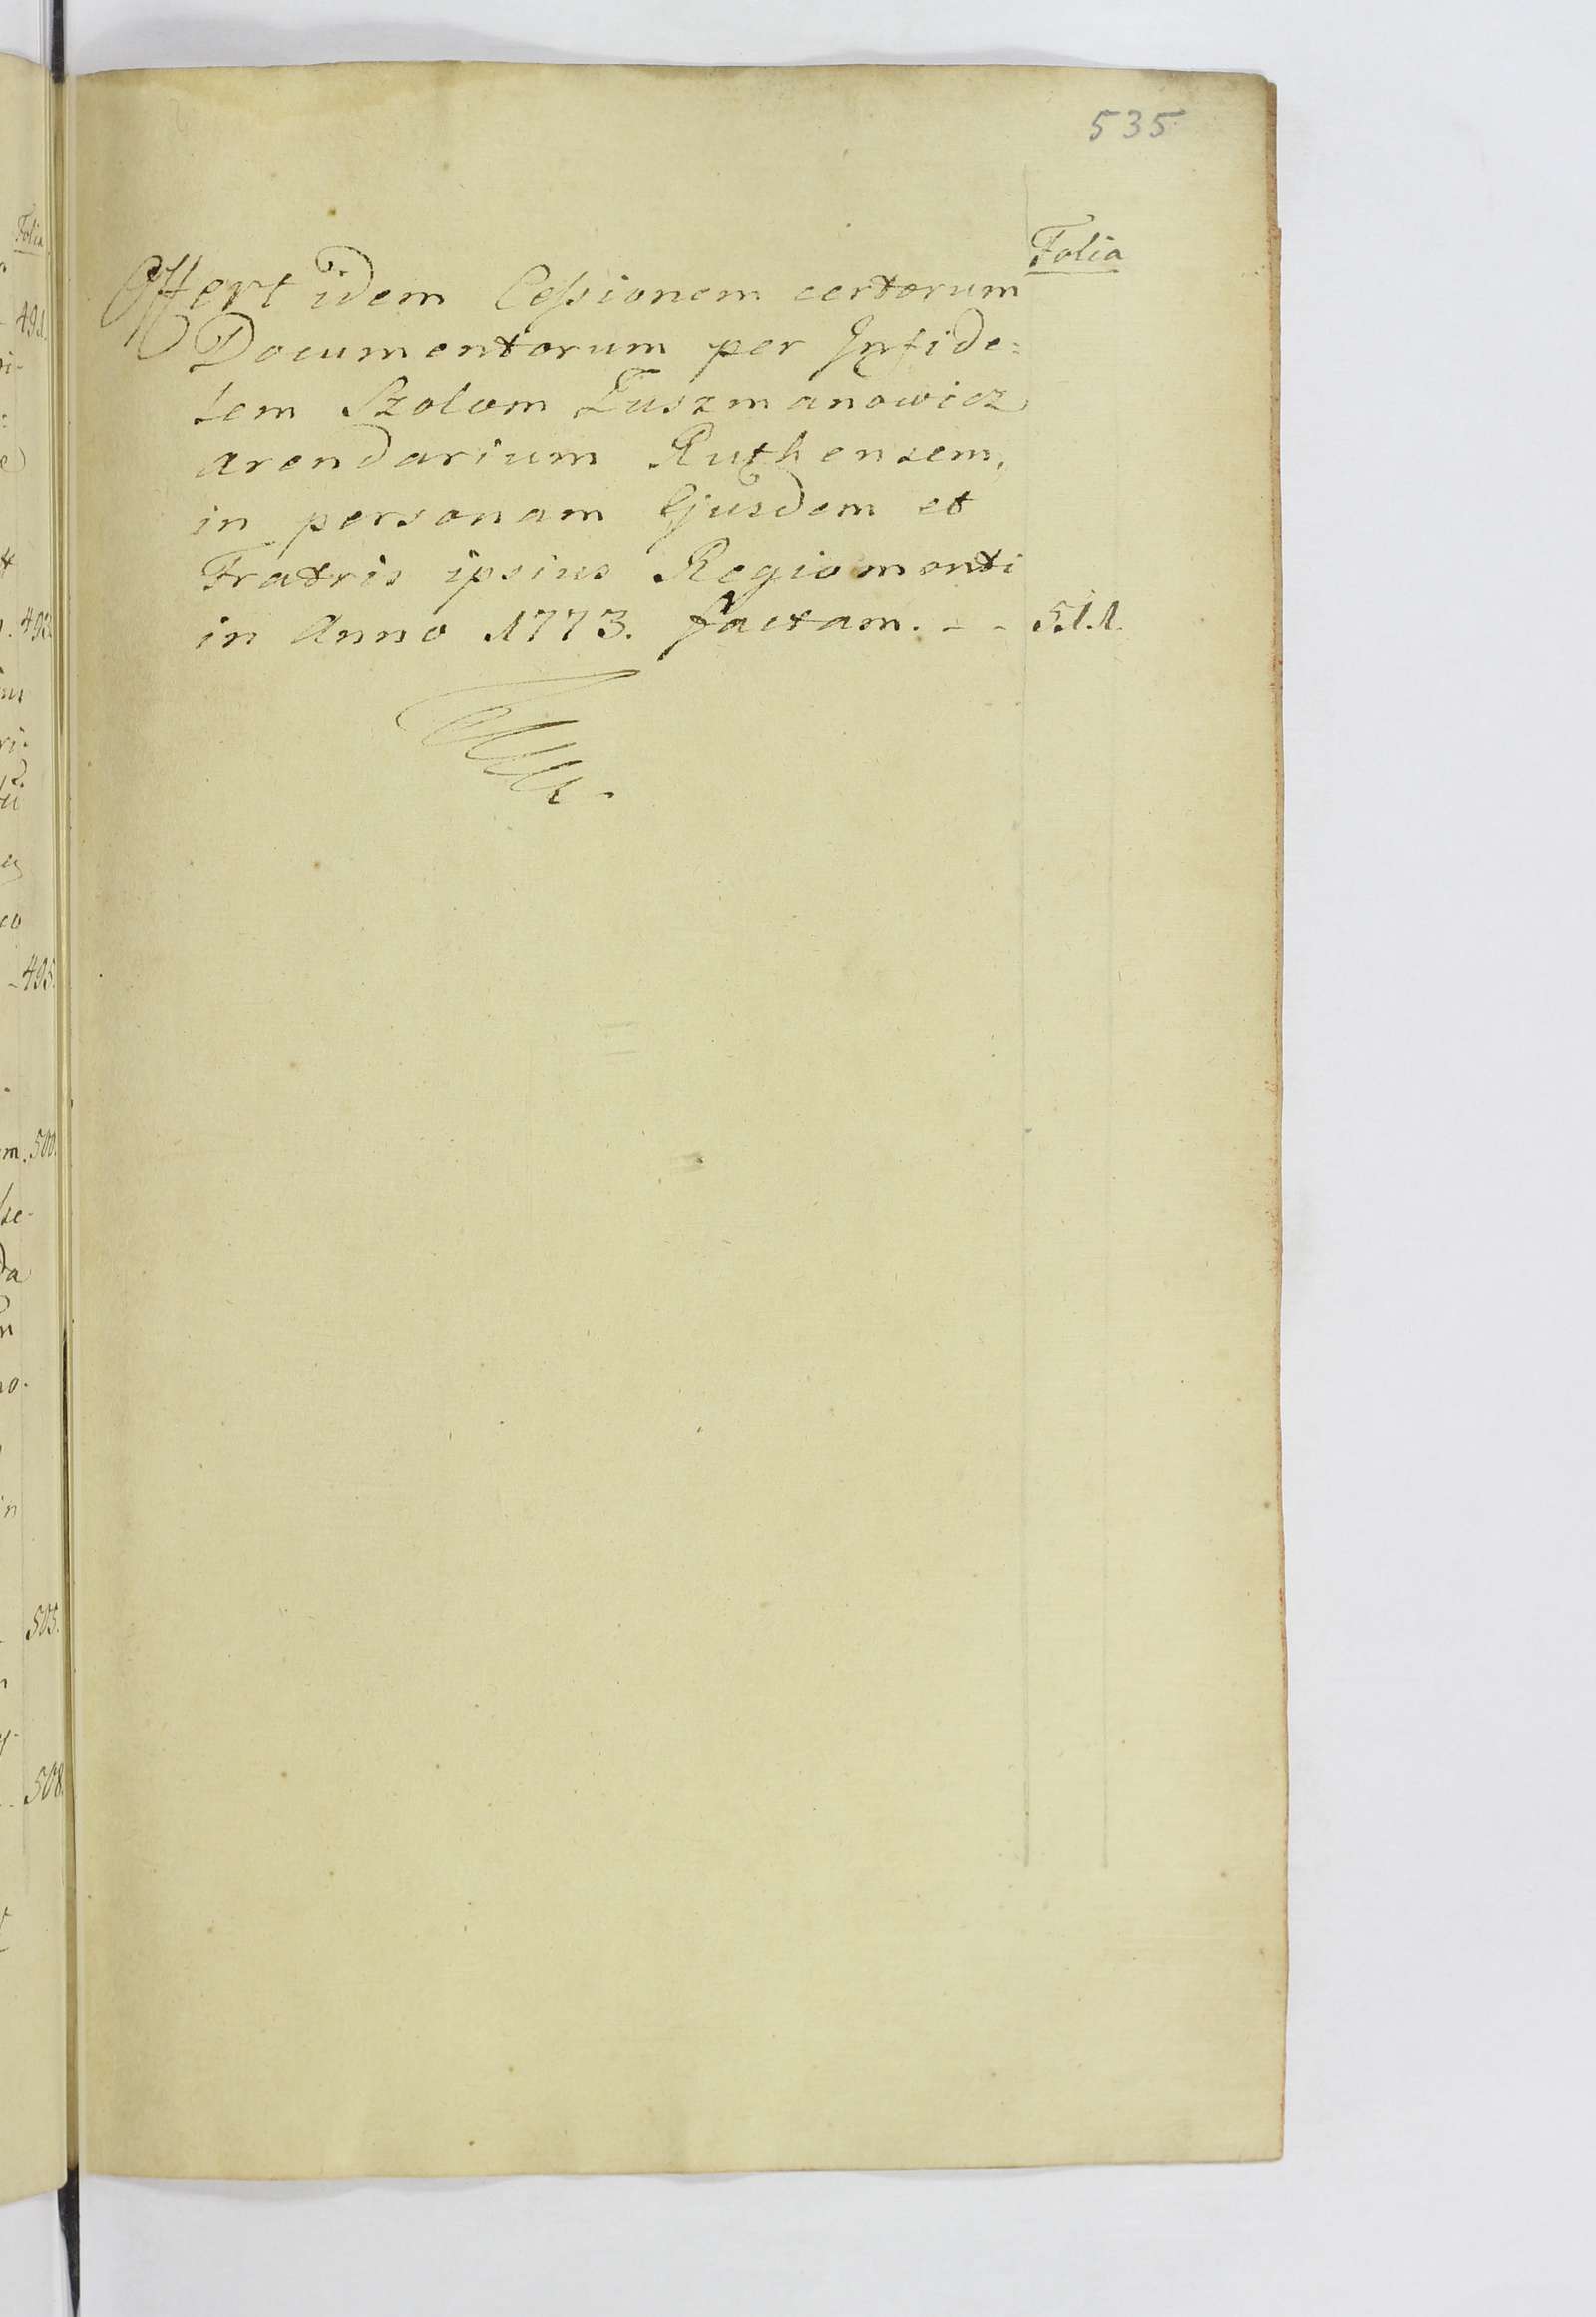 535
Folia
Offert idem Cessionem certorum
Documentorum per Infide=
lem Szolom Tuszmanowicz
arendarium Ruthensem,
in personam Ejusdem et
Fratris ipsius Regiomonti
in Anno 1773. factam. - - 511.
Folia
491.
493.
495.
m. 500.
505.
508.